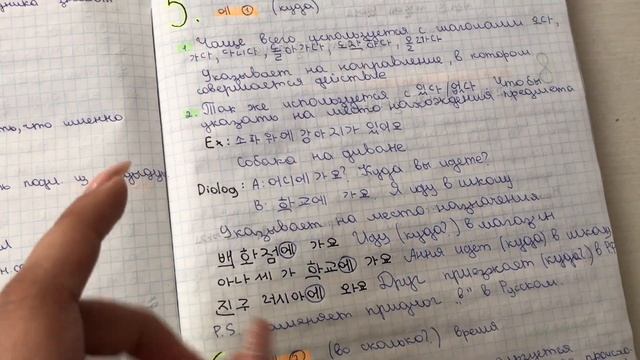 5. 에 ① (куда)
1. Чаще всего используется с глаголами 오다,
가다, 다니다, 돌아가다, 도착하다, 올라가다
Указывает на направление, в котором
совершается действие
2. Так же используется с 있다/없다. Чтобы
указать на место нахождения предмета
Ex: 소파 위에 강아지가 있어요
Собака на диване
Dialog: A: 어디에 가요? Куда вы идете?
B: 학교에 가요. Я иду в школу
Указывает на место назначения
백화점에 가요 Иду (куда?) в магазин
아나 세가 학교에 가요 Ання идет (куда) в школу
친구 러시아에 와요 Друг приезжает (куда?) в РФ
P.S. заменяет предлог "в" в Русском.
(во сколько?) время
ть, что именно